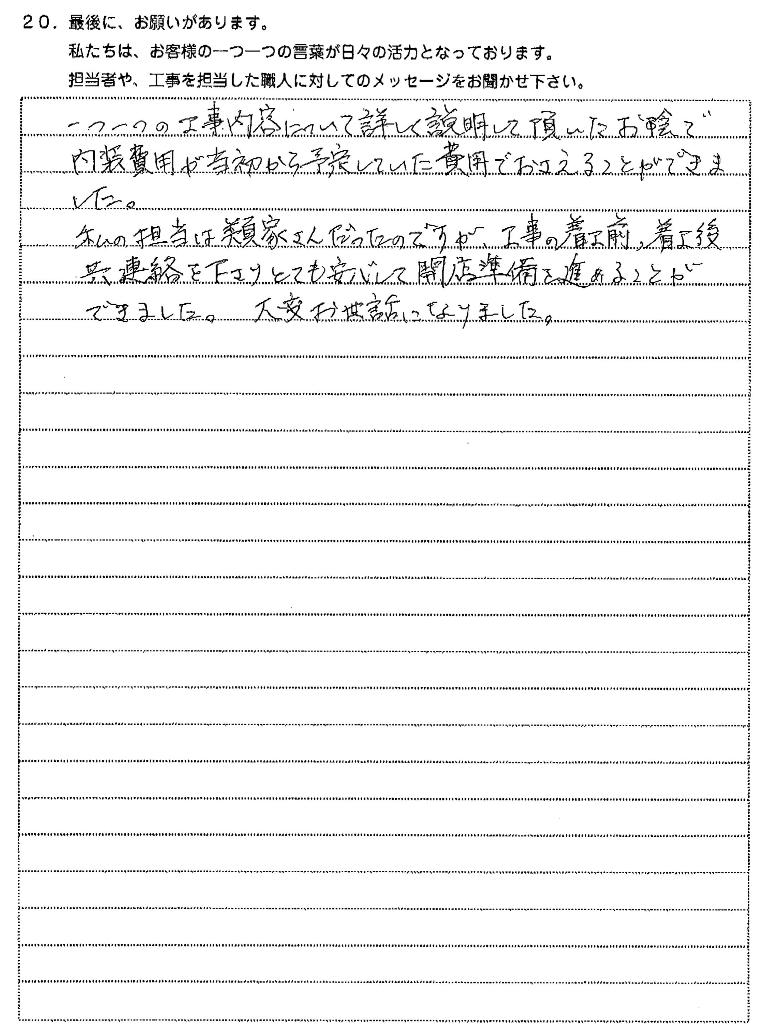 20. 最後に、お願いがあります。
私たちは、お客様の一つ一つの言葉が日々の活力となっております。
担当者や、工事を担当した職人に対してのメッセージをお聞かせ下さい。
一つ一つの工事内容について詳しく説明して頂いたお陰で
内装費用が当初から予定していた費用でおさえることができま
した。
私の担当は類家さんだったのですが、工事の着工前、着工後
共連絡を下さりとても安心して開店準備を進めることが
できました。 大変お世話になりました。